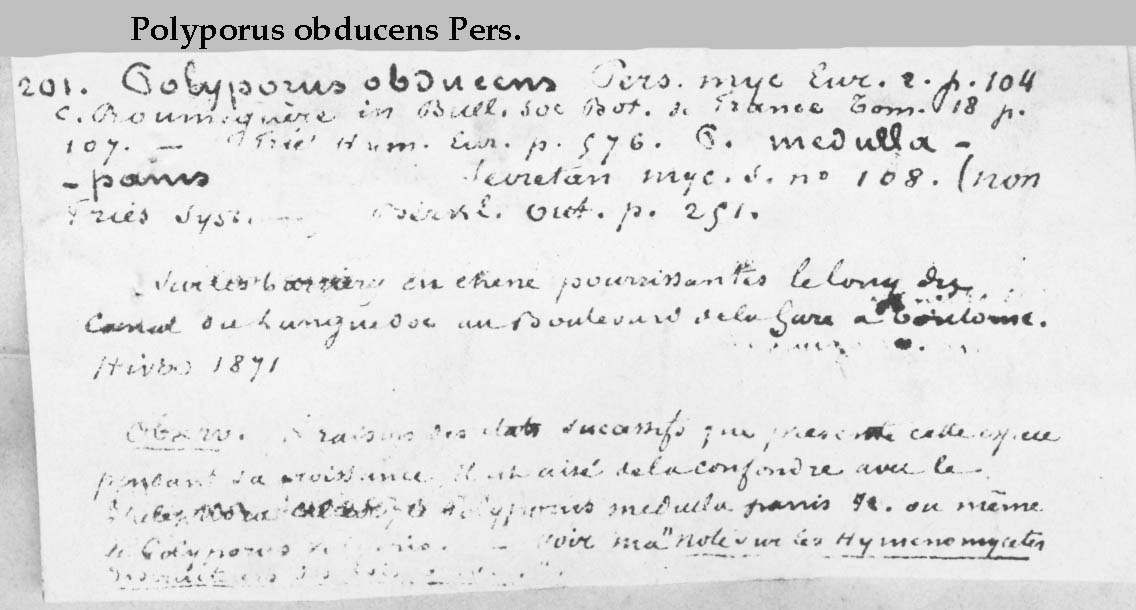 Polyporus obducens Pers.
201. Polyporus obducens Pers. myc Eur. 2. p. 104
C. Roumeguère in Bull. Soc Bot. de France Tom. 18 p.
107. — Fries Hym. Eur. p. 576. P. medulla -
- panis Secretan myc. S. no 108. (non
Fries Syst. — Berkl. Out. p. 251.
Sur les barrières en chene pourrissantes le long du
Canal du Languedoc au Boulevard de la Gare à Toulouse.
Hiver 1871
Observ. A raison des états successifs que présente cette espèce
pendant sa croissance, il est aisé de la confondre avec le
Polyporus medulla panis Fr. ou même
le Polyporus — Voir ma "Note sur les Hymenomycetes
destructeurs des bois